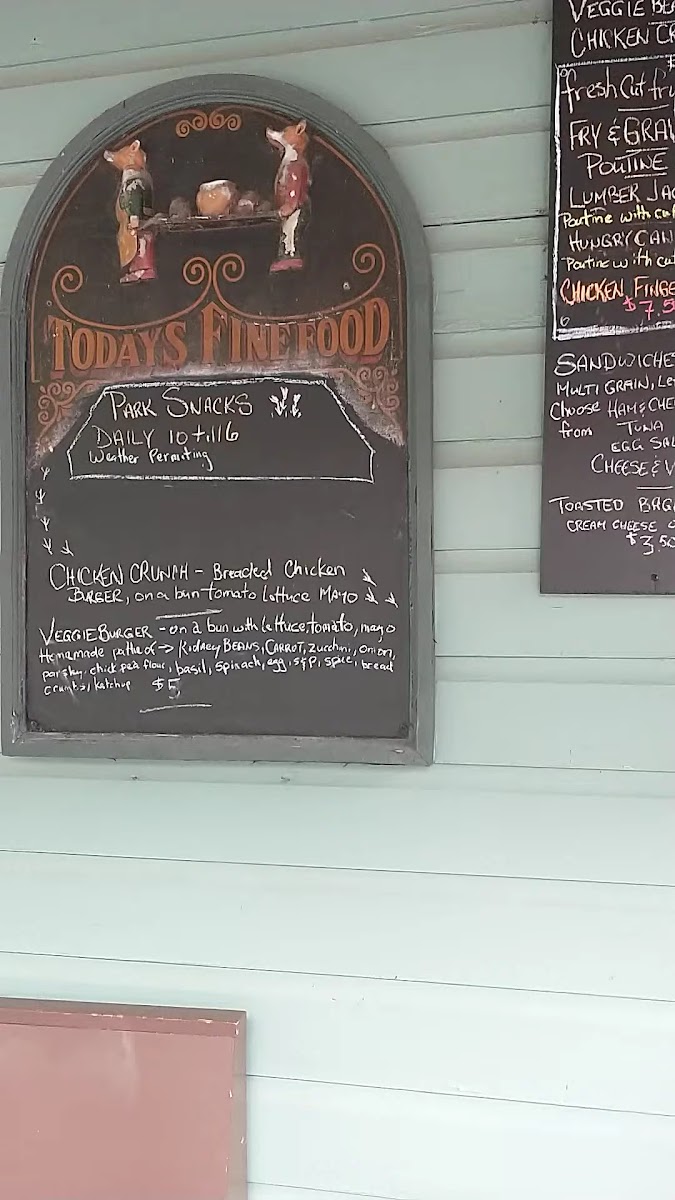 TODAYS FINE FOOD
PARK SNACKS
DAILY 10 till 6
Weather Permiting
CHICKEN CRUNCH - Breaded Chicken
BURGER, on a bun tomato lettuce MAYO
VEGGIE BURGER - on a bun with lettuce, tomato, mayo
Homemade pattie of → KIDNEY BEANS, CARROT, zucchini, onion,
parsley, chick pea flour, basil, spinach, egg, s&p, spice, bread
crumbs, ketchup $5
VEGGIE
CHICKEN
fresh cut
FRY & GRAV
POUTINE
LUMBER JAC
Poutine with
HUNGRY CAN
Poutine with cut
CHICKEN FINGE
$7.5
SANDWICHES
MULTI GRAIN, Le
Choose HAM & CHE
from TUNA
EGG SAL
CHEESE & V
TOASTED BAG
CREAM CHEESE
$3.50